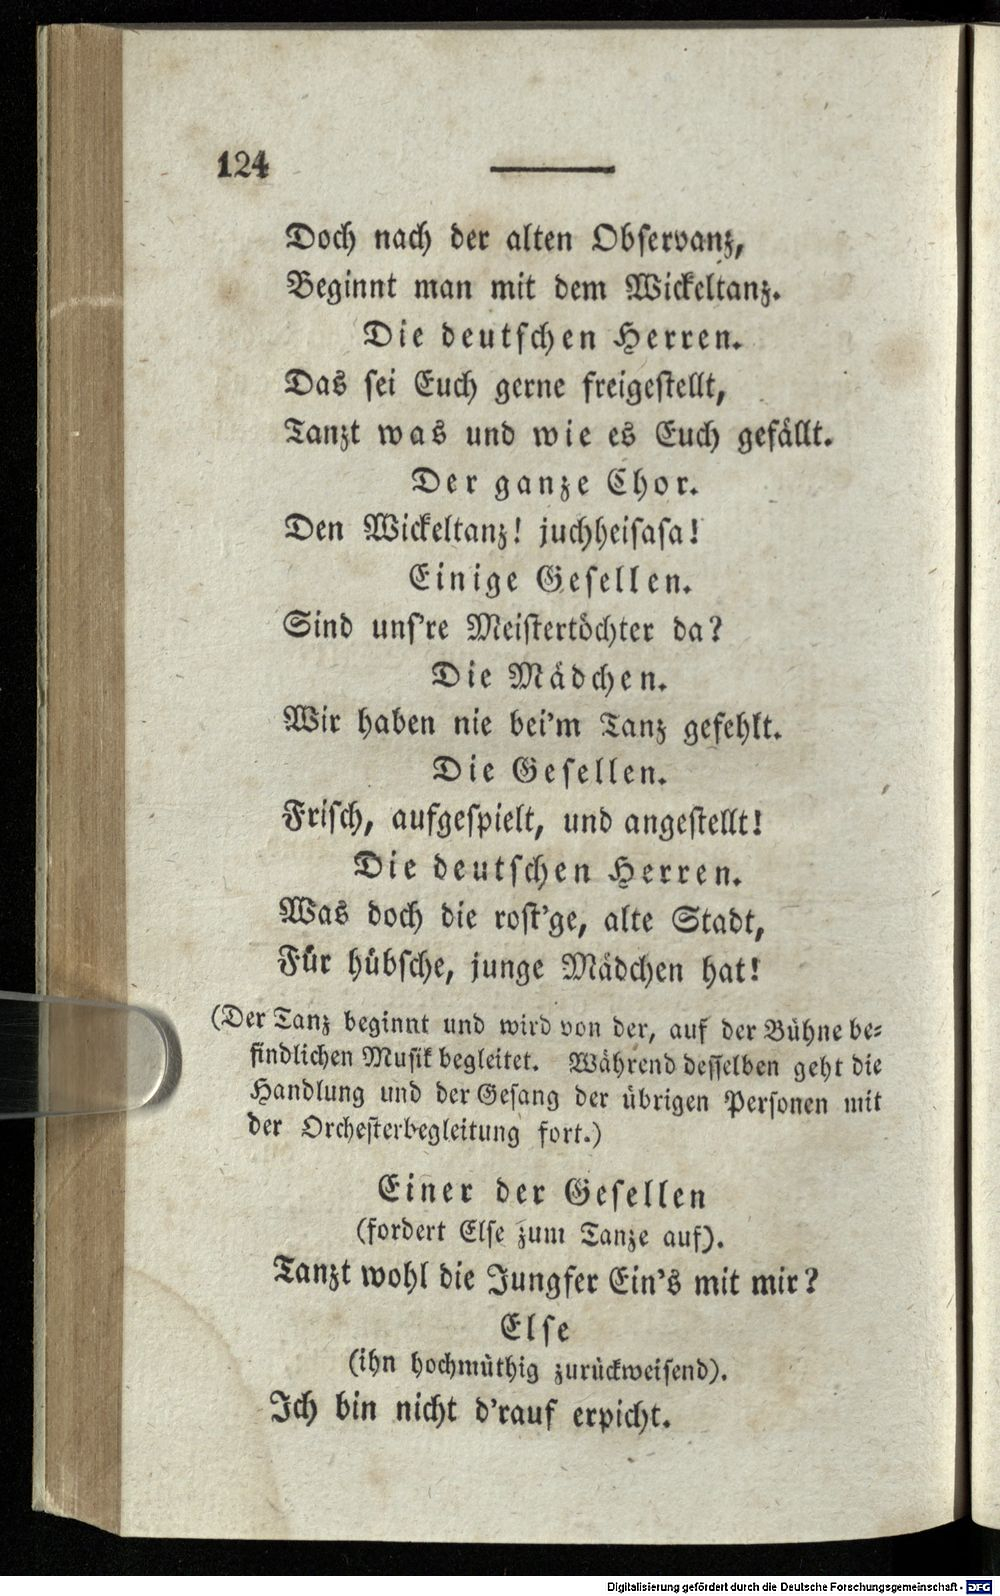 124
Doch nach der alten Observanz,
Beginnt man mit dem Wickeltanz.
Die deutschen Herren.
Das sei Euch gerne freigestellt,
Tanzt was und wie es Euch gefällt.
Der ganze Chor.
Den Wickeltanz! juchheisasa!
Einige Gesellen.
Sind uns're Meistertöchter da?
Die Mädchen.
Wir haben nie bei'm Tanz gefehlt.
Die Gesellen.
Frisch, aufgespielt, und angestellt!
Die deutschen Herren.
Was doch die rost'ge, alte Stadt,
Für hübsche, junge Mädchen hat!
(Der Tanz beginnt und wird von der, auf der Bühne be-
findlichen Musik begleitet. Während desselben geht die
Handlung und der Gesang der übrigen Personen mit
der Orchesterbegleitung fort.)
Einer der Gesellen
(fordert Else zum Tanze auf).
Tanzt wohl die Jungfer Ein's mit mir?
Else
(ihn hochmüthig zurückweisend).
Ich bin nicht d'rauf erpicht.
Digitalisierung gefördert durch die Deutsche Forschungsgemeinschaft - DFG